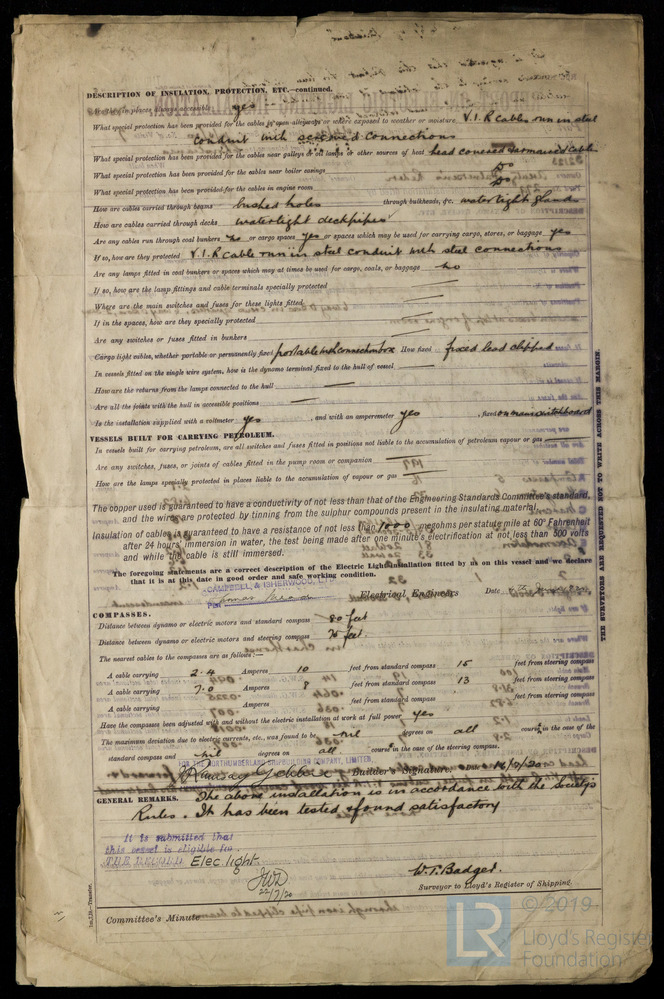 DESCRIPTION OF INSULATION, PROTECTION, ETC.—continued.
places always accessible yes
What special protection has been provided for the cables in open alleyways or where exposed to weather or moisture V.I.R cables run in steel
conduit with screwed connections
What special protection has been provided for the cables near galleys or oil lamps or other sources of heat lead covered & armoured cable
What special protection has been provided for the cables near boiler casings Do
What special protection has been provided for the cables in engine room Do
How are cables carried through beams bushed holes through bulkheads, &c. watertight glands
How are cables carried through decks watertight deckpipes
Are any cables run through coal bunkers no or cargo spaces yes or spaces which may be used for carrying cargo, stores, or baggage yes
If so, how are they protected V.I.R cable run in steel conduit with steel connections
Are any lamps fitted in coal bunkers or spaces which may at times be used for cargo, coals, or baggage no
If so, how are the lamp fittings and cable terminals specially protected —
Where are the main switches and fuses for these lights fitted —
If in the spaces, how are they specially protected —
Are any switches or fuses fitted in bunkers —
Cargo light cables, whether portable or permanently fixed portable with connection box How fixed fixed lead clipped
In vessels fitted on the single wire system, how is the dynamo terminal fixed to the hull of vessel —
How are the returns from the lamps connected to the hull —
Are all the joints with the hull in accessible positions —
Is the installation supplied with a voltmeter yes , and with an amperemeter yes , fixed on main switchboard
VESSELS BUILT FOR CARRYING PETROLEUM.
In vessels built for carrying petroleum, are all switches and fuses fitted in positions not liable to the accumulation of petroleum vapour or gas —
Are any switches, fuses, or joints of cables fitted in the pump room or companion —
How are the lamps specially protected in places liable to the accumulation of vapour or gas —
The copper used is guaranteed to have a conductivity of not less than that of the Engineering Standards Committee's standard,
and the wires are protected by tinning from the sulphur compounds present in the insulating material.
Insulation of cables is guaranteed to have a resistance of not less than 1000 megohms per statute mile at 60° Fahrenheit
after 24 hours' immersion in water, the test being made after one minute's electrification at not less than 500 volts
and while the cable is still immersed.
The foregoing statements are a correct description of the Electric Light installation fitted by us on this vessel and we declare
that it is at this date in good order and safe working condition.
CAMPBELL & ISHERWOOD, LTD.
Electrical Engineers Date
COMPASSES.
Distance between dynamo or electric motors and standard compass 80 feet
Distance between dynamo or electric motors and steering compass 76 feet
The nearest cables to the compasses are as follows:—
A cable carrying 2.4 Amperes 10 feet from standard compass 15 feet from steering compass
A cable carrying 7.0 Amperes 8 feet from standard compass 13 feet from steering compass
A cable carrying Amperes feet from standard compass feet from steering compass
Have the compasses been adjusted with and without the electric installation at work at full power yes
The maximum deviation due to electric currents, etc., was found to be nil degrees on all course in the case of the
standard compass and nil degrees on all course in the case of the steering compass.
FOR THE NORTHUMBERLAND SHIPBUILDING COMPANY, LIMITED,
Builder's Signature. Date
GENERAL REMARKS. The above installation is in accordance with the Society's
Rules. It has been tested & found satisfactory
It is submitted that
this vessel is eligible for
THE RECORD Elec light
22/7/20
W.T. Badger.
Surveyor to Lloyd's Register of Shipping.
Committee's Minute
THE SURVEYORS ARE REQUESTED NOT TO WRITE ACROSS THIS MARGIN.
© 2019
LR
Lloyd's Register
Foundation